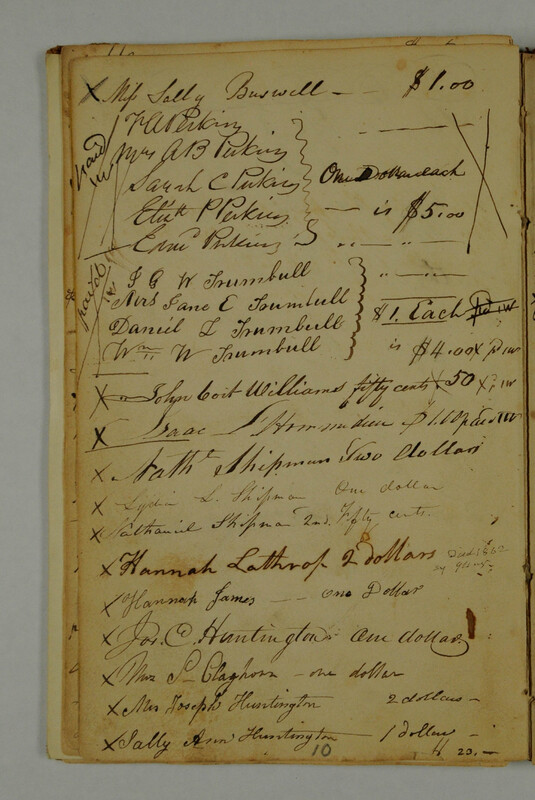 X Miss Sally Buswell — $1.00
F A Perkins
Mrs A B Perkins
Sarah C Perkins One Dollar each
Elizth P Perkins — is $5.00
Perkins
paid
J G W Trumbull
Mrs Jane E Trumbull
Daniel L Trumbull $1. Each
Wm W Trumbull is $4.00 X
X John Coit Williams fifty cents 50 X
X Isaac $1.00
X Nathl Shipman Two dollars
X Lydia L. Shipman One dollar
X Nathaniel Shipman 2nd. Fifty cents.
X Hannah Lathrop 2 dollars
X Hannah James — one Dollar
X Jos. C. Huntington One dollar
X Mrs S Claghorn — one dollar
X Mrs Joseph Huntington 2 dollars —
X Sally Ann Huntington — 1 dollar —
10
23.—